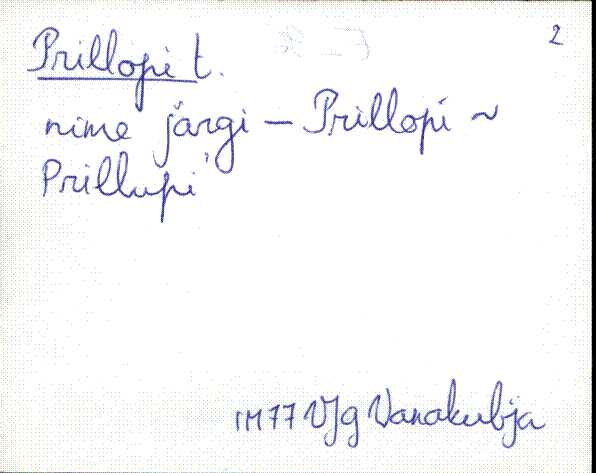 2
Prillopi t.
nime järgi – Prillopi ~
Prillupi
IM77 VJg Vanakubja